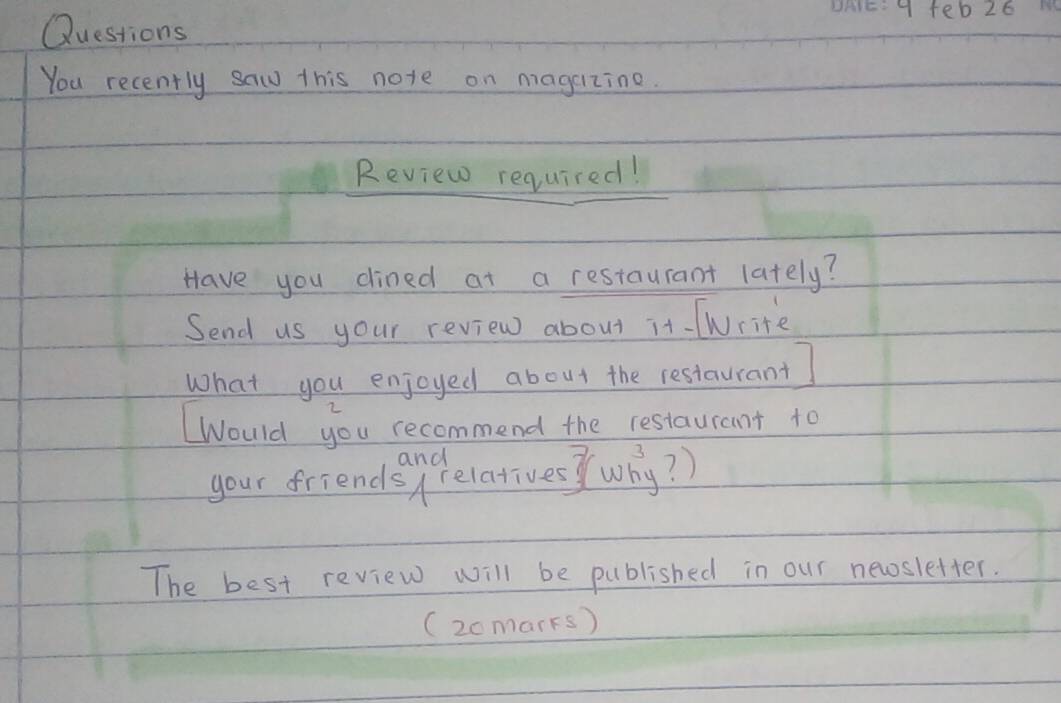 DATE: 9 feb 26 NO
Questions
You recently saw this note on magazine.
Review required!
Have you dined at a restaurant lately?
Send us your review about it. [Write 1
What you enjoyed about the restaurant]
[Would you 2 recommend the restaurant to
your friends and relatives?] (Why? 3)
The best review will be published in our newsletter.
(20 marks)